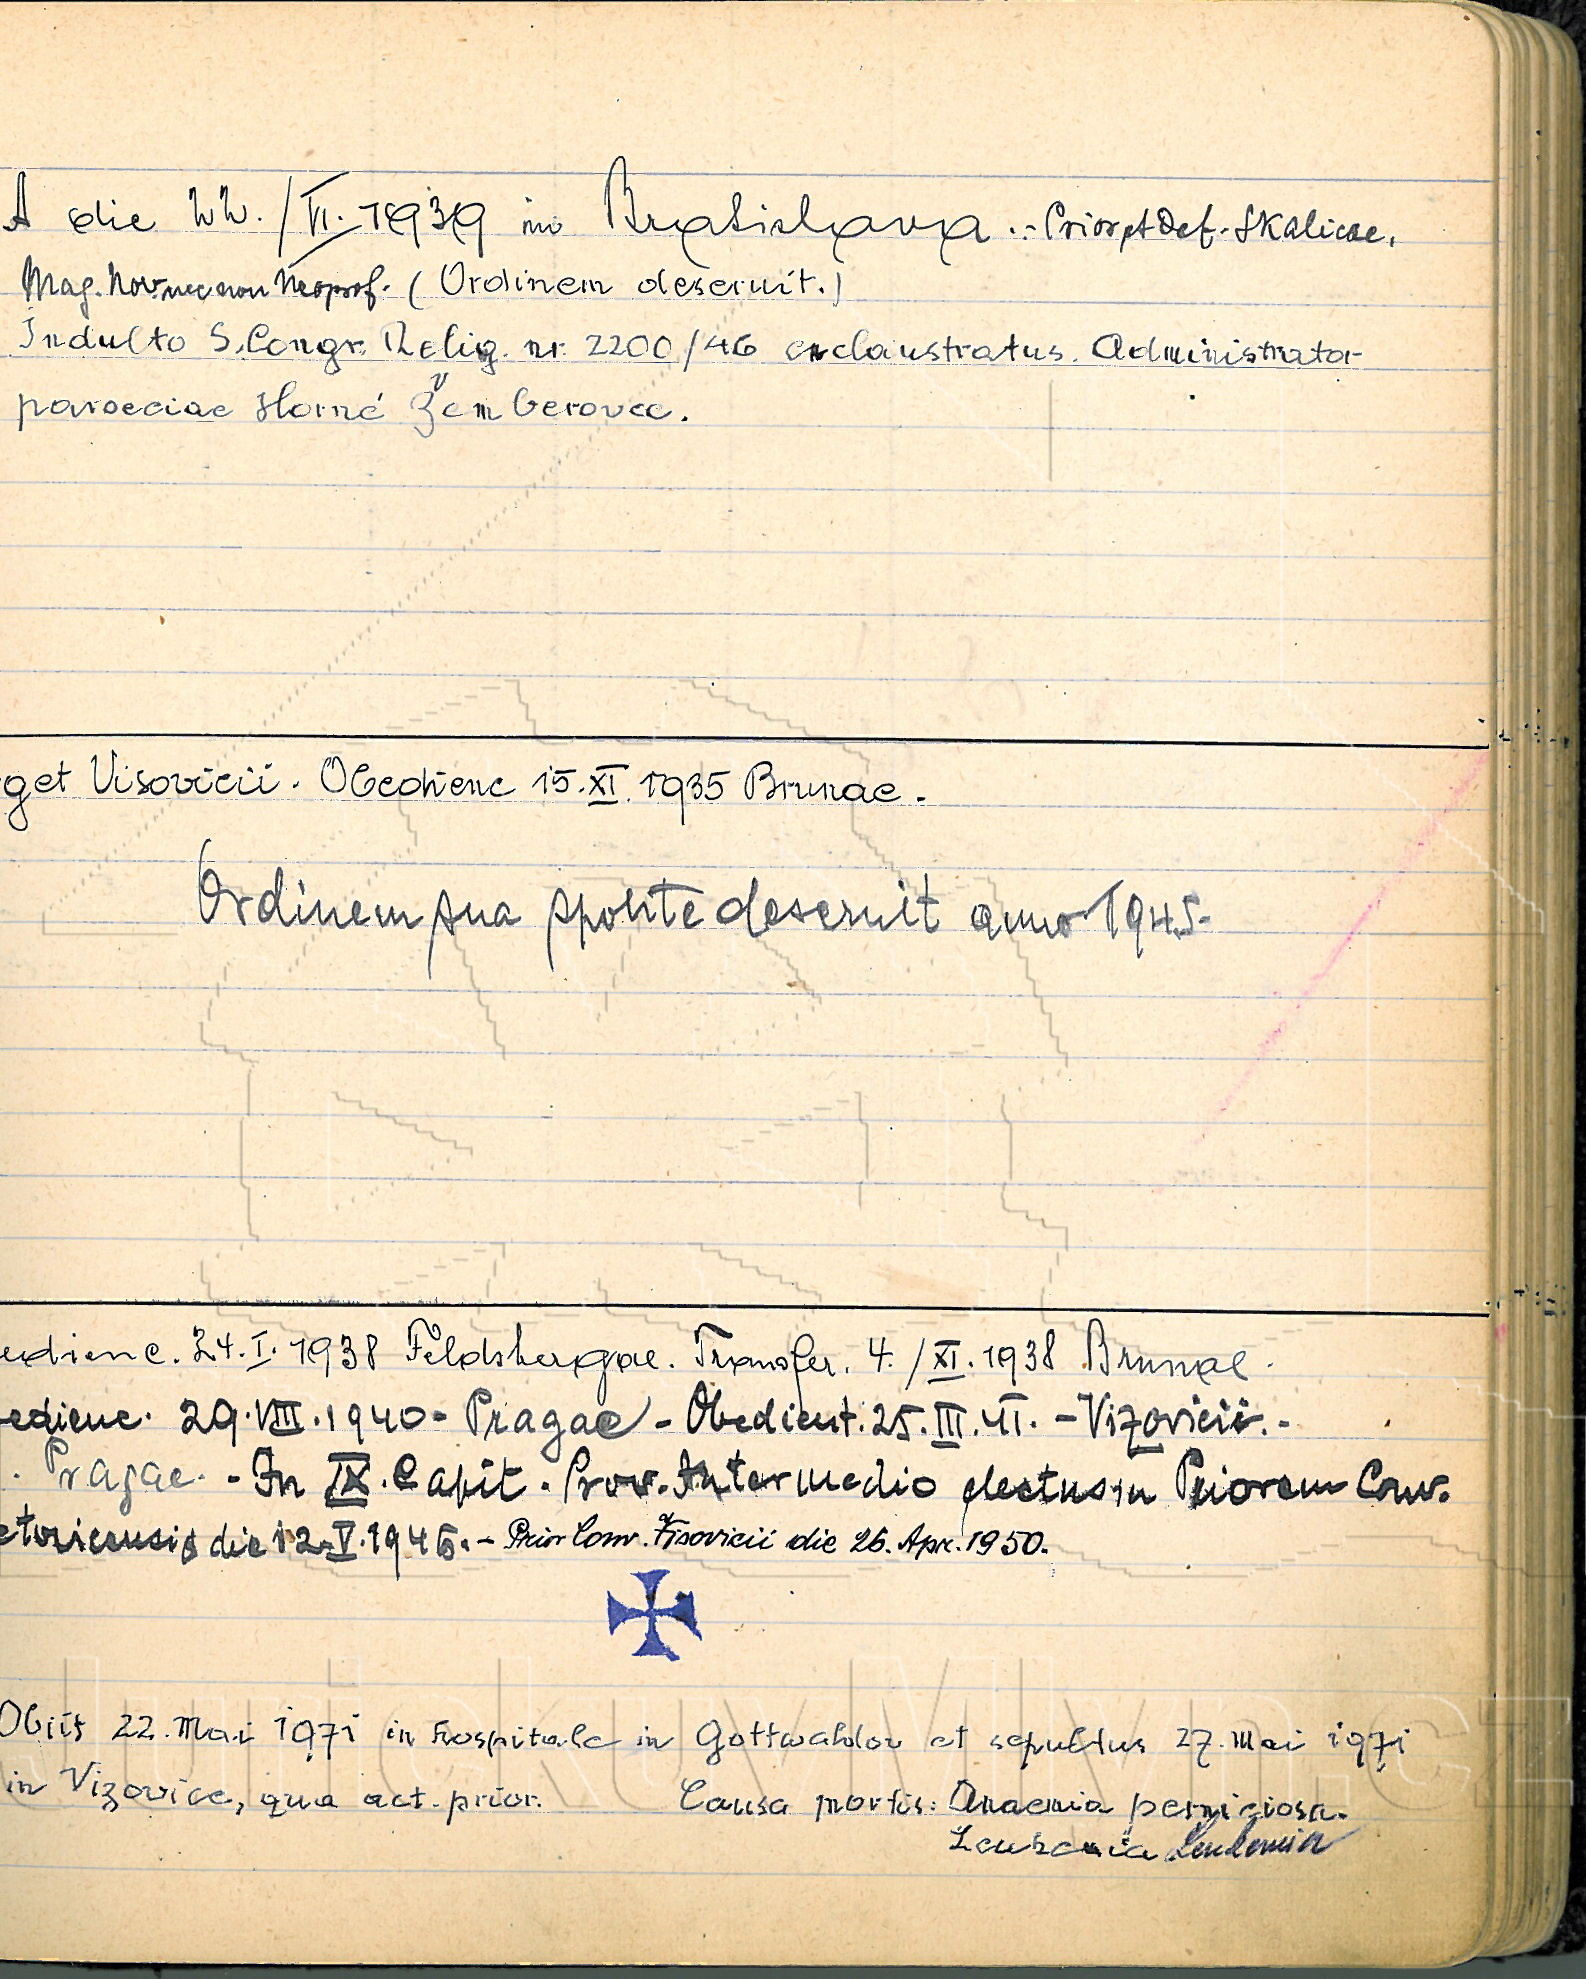 A die 22./VI. 1939 in Bratislava .- Prior et Def. Skalicae,
Mag. Nov. necnon Neoprof. (Ordinem deseruit.)
Indulto S. Congr. Relig. nr. 2200/46 exclaustratus. Administrator
paroeciae Horné Žemberovce.
get Visovicii. Obedienc 15.XI.1935 Brunae.
Ordinem sua sponte deseruit anno 1945.
edienc. 24.I.1938 Feldsbergae. Transfer. 4./XI.1938 Brunae.
edienc. 29.VIII.1940 - Pragae - Obedient. 25.III.41. - Vizovicii. -
. Pragae. - In IX. Capit. Prov. Intermedio electus in Priorem Conv.
die 12.V.1946. - Prior Conv. Visovicii die 26. Apr. 1950.
Obiit 22. Mai 1971 in hospitale in Gottwaldov et sepultus 27. Mai 1971
in Vizovice, qua act. prior. Causa mortis: Anaemia perniciosa.
Leukemia